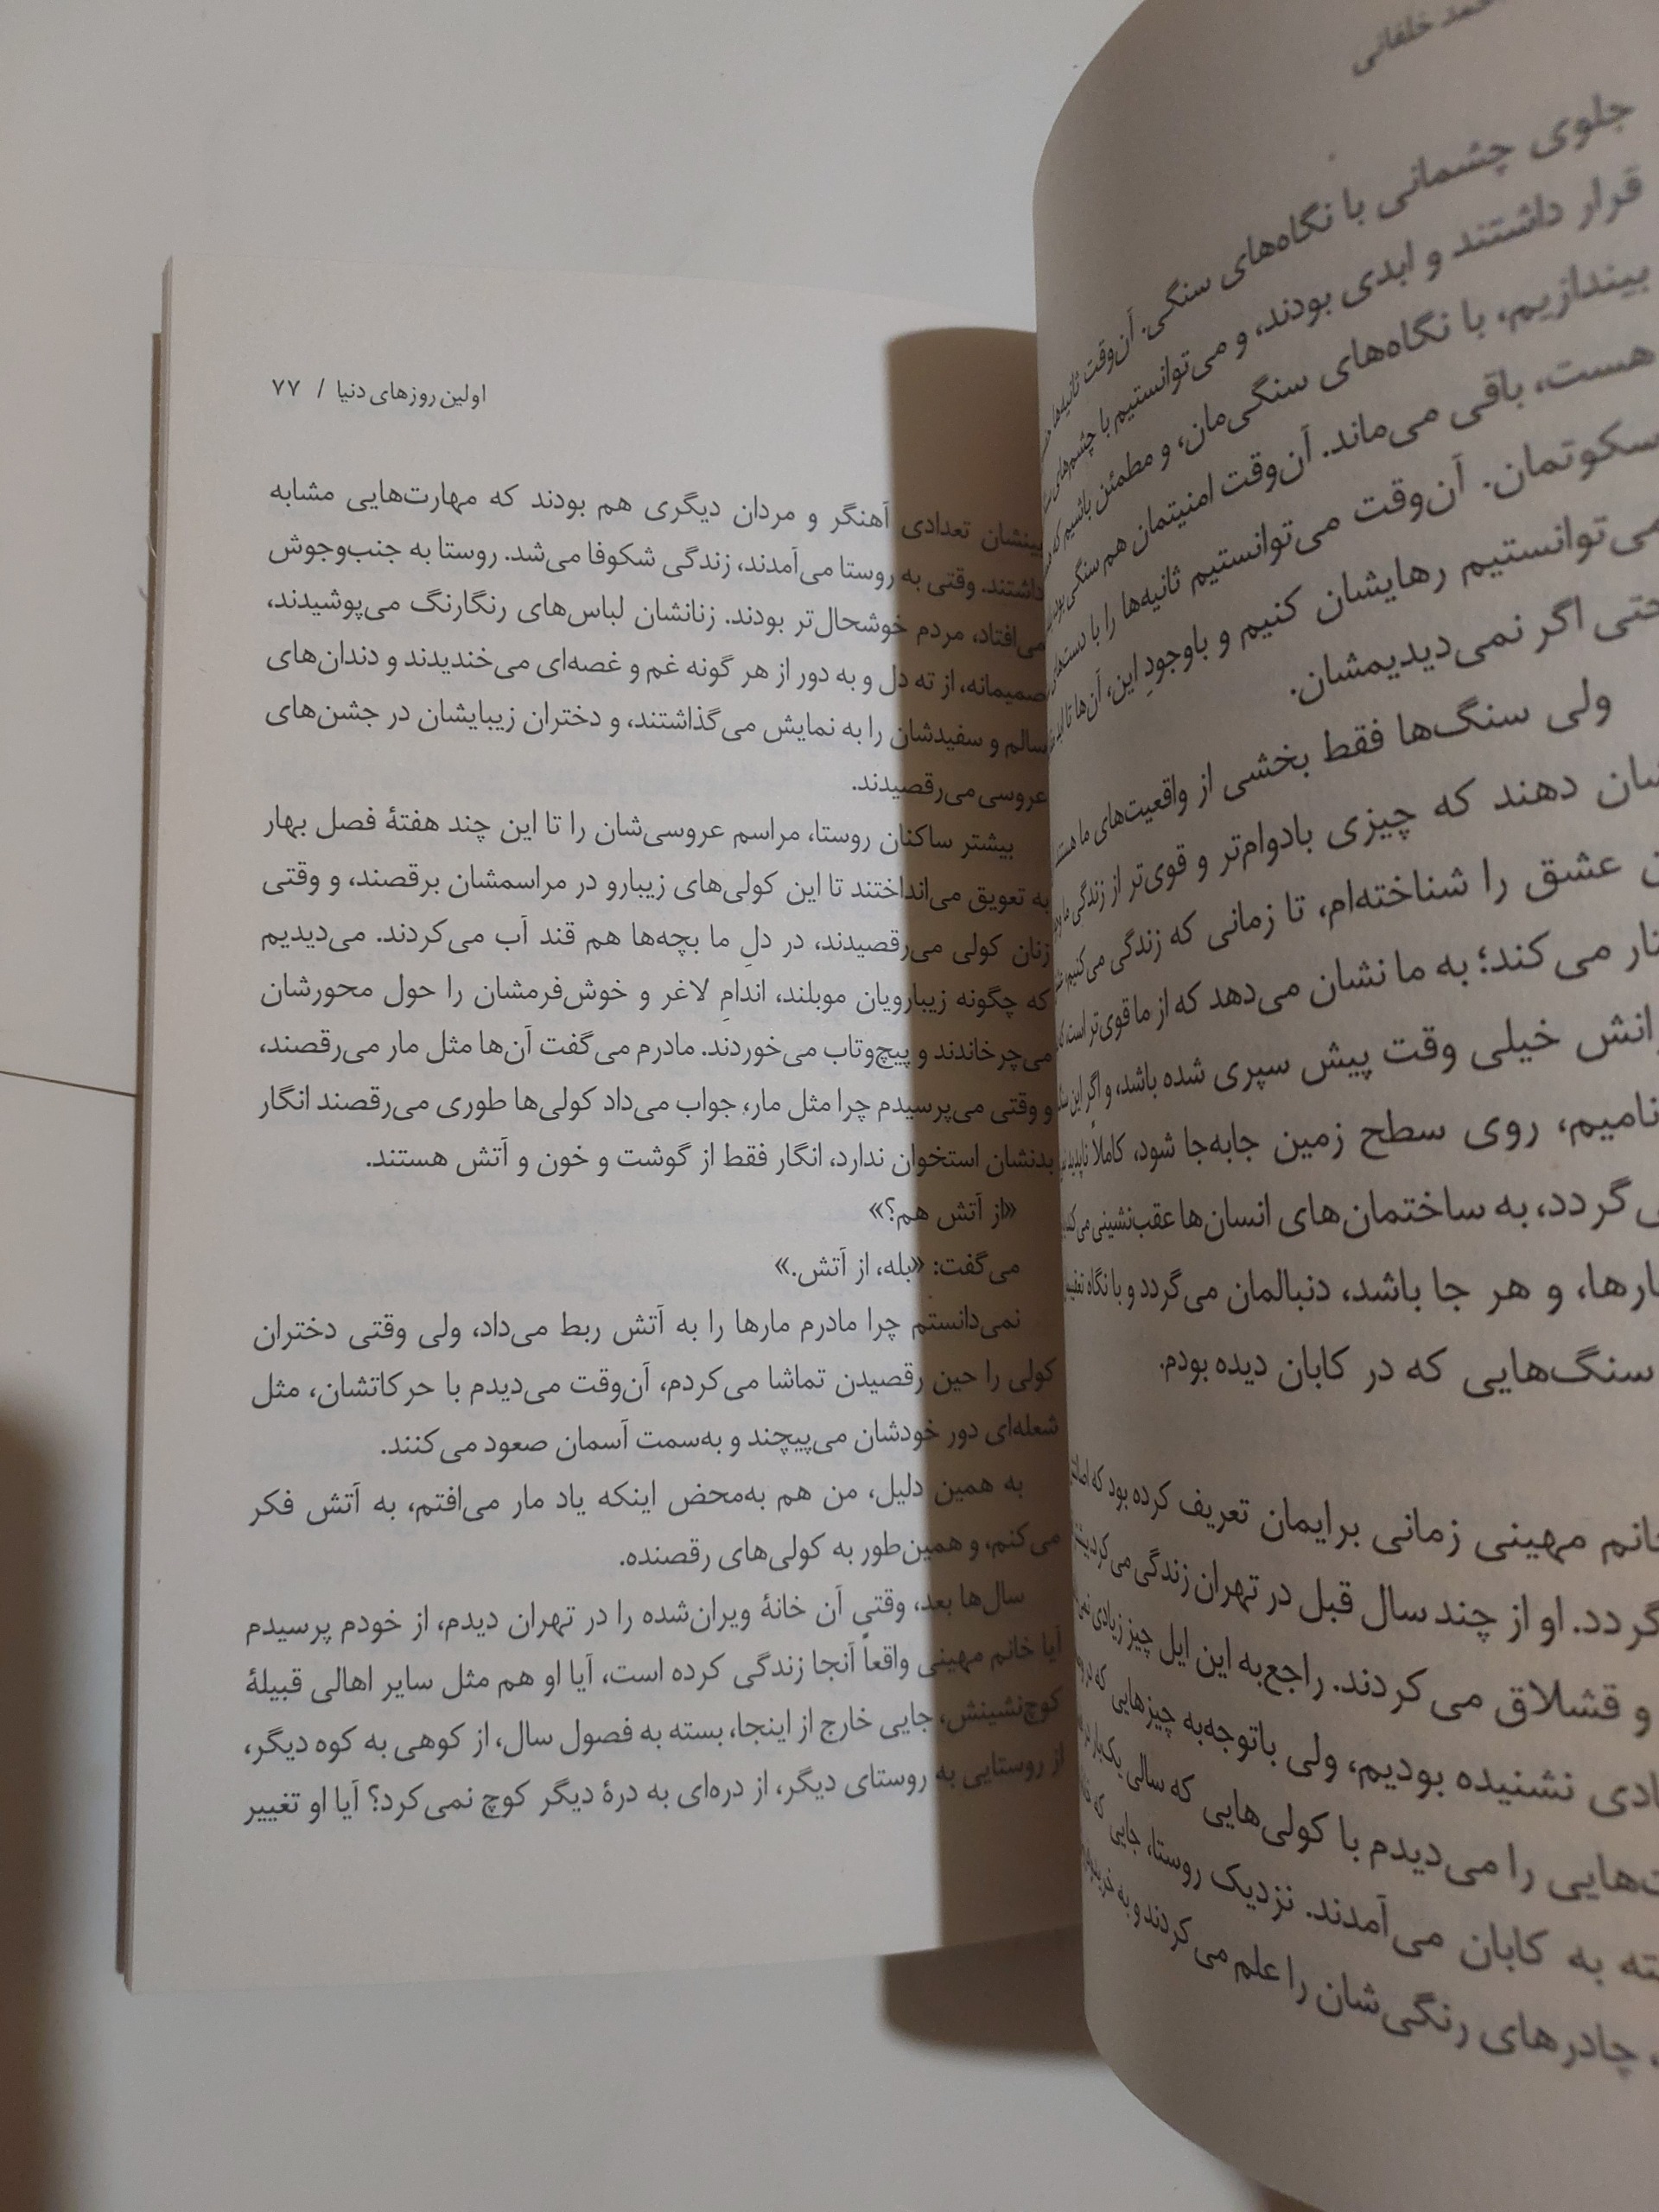 خلفانی
جلوی چشمانی با نگاه‌های سنگی. آن‌وقت ثانیه‌ها
قرار داشتند و ابدی بودند، و می‌توانستیم با چشم‌های
بیندازیم، با نگاه‌های سنگی‌مان، و مطمئن باشیم که
هست، باقی می‌ماند. آن‌وقت امنیتمان هم سنگی
سکوتمان. آن‌وقت می‌توانستیم ثانیه‌ها را با دست‌های
می‌توانستیم رهایشان کنیم و باوجودِ این، آن‌ها تا ابد
حتی اگر نمی‌دیدیمشان.
ولی سنگ‌ها فقط بخشی از واقعیت‌های ما هستند
دهند که چیزی بادوام‌تر و قوی‌تر از زندگی ما
عشق را شناخته‌ام، تا زمانی که زندگی می‌کنیم
می‌کند؛ به ما نشان می‌دهد که از ما قوی‌تر است
خیلی وقت پیش سپری شده باشد، و اگر این
روی سطح زمین جابه‌جا شود، کاملاً ناپدید
به ساختمان‌های انسان‌ها عقب‌نشینی می‌کند
و هر جا باشد، دنبالمان می‌گردد و با نگاه
سنگ‌هایی که در کابان دیده بودم.
خانم مهینی زمانی برایمان تعریف کرده بود که
او از چند سال قبل در تهران زندگی می‌کرد
و قشلاق می‌کردند. راجع‌به این ایل چیز زیادی
نشنیده بودیم، ولی باتوجه‌به چیزهایی که
را می‌دیدم با کولی‌هایی که سالی یک‌بار
به کابان می‌آمدند. نزدیک روستا، جایی که
چادرهای رنگی‌شان را علم می‌کردند و به
اولین روزهای دنیا / ۷۷
بینشان تعدادی آهنگر و مردان دیگری هم بودند که مهارت‌هایی مشابه
داشتند. وقتی به روستا می‌آمدند، زندگی شکوفا می‌شد. روستا به جنب‌وجوش
می‌افتاد، مردم خوشحال‌تر بودند. زنانشان لباس‌های رنگارنگ می‌پوشیدند،
صمیمانه، از ته دل و به دور از هر گونه غم و غصه‌ای می‌خندیدند و دندان‌های
سالم و سفیدشان را به نمایش می‌گذاشتند، و دختران زیبایشان در جشن‌های
عروسی می‌رقصیدند.
بیشتر ساکنان روستا، مراسم عروسی‌شان را تا این چند هفتهٔ فصل بهار
به تعویق می‌انداختند تا این کولی‌های زیبارو در مراسمشان برقصند، و وقتی
زنان کولی می‌رقصیدند، در دلِ ما بچه‌ها هم قند آب می‌کردند. می‌دیدیم
که چگونه زیبارویان موبلند، اندامِ لاغر و خوش‌فرمشان را حول محورشان
می‌چرخاندند و پیچ‌وتاب می‌خوردند. مادرم می‌گفت آن‌ها مثل مار می‌رقصند،
و وقتی می‌پرسیدم چرا مثل مار، جواب می‌داد کولی‌ها طوری می‌رقصند انگار
بدنشان استخوان ندارد، انگار فقط از گوشت و خون و آتش هستند.
«از آتش هم؟»
می‌گفت: «بله، از آتش.»
نمی‌دانستم چرا مادرم مارها را به آتش ربط می‌داد، ولی وقتی دختران
کولی را حین رقصیدن تماشا می‌کردم، آن‌وقت می‌دیدم با حرکاتشان، مثل
شعله‌ای دور خودشان می‌پیچند و به‌سمت آسمان صعود می‌کنند.
به همین دلیل، من هم به‌محض اینکه یاد مار می‌افتم، به آتش فکر
می‌کنم، و همین‌طور به کولی‌های رقصنده.
سال‌ها بعد، وقتی آن خانهٔ ویران‌شده را در تهران دیدم، از خودم پرسیدم
آیا خانم مهینی واقعاً آنجا زندگی کرده است، آیا او هم مثل سایر اهالی قبیلهٔ
کوچ‌نشینش، جایی خارج از اینجا، بسته به فصول سال، از کوهی به کوه دیگر،
از روستایی به روستای دیگر، از دره‌ای به درهٔ دیگر کوچ نمی‌کرد؟ آیا او تغییر